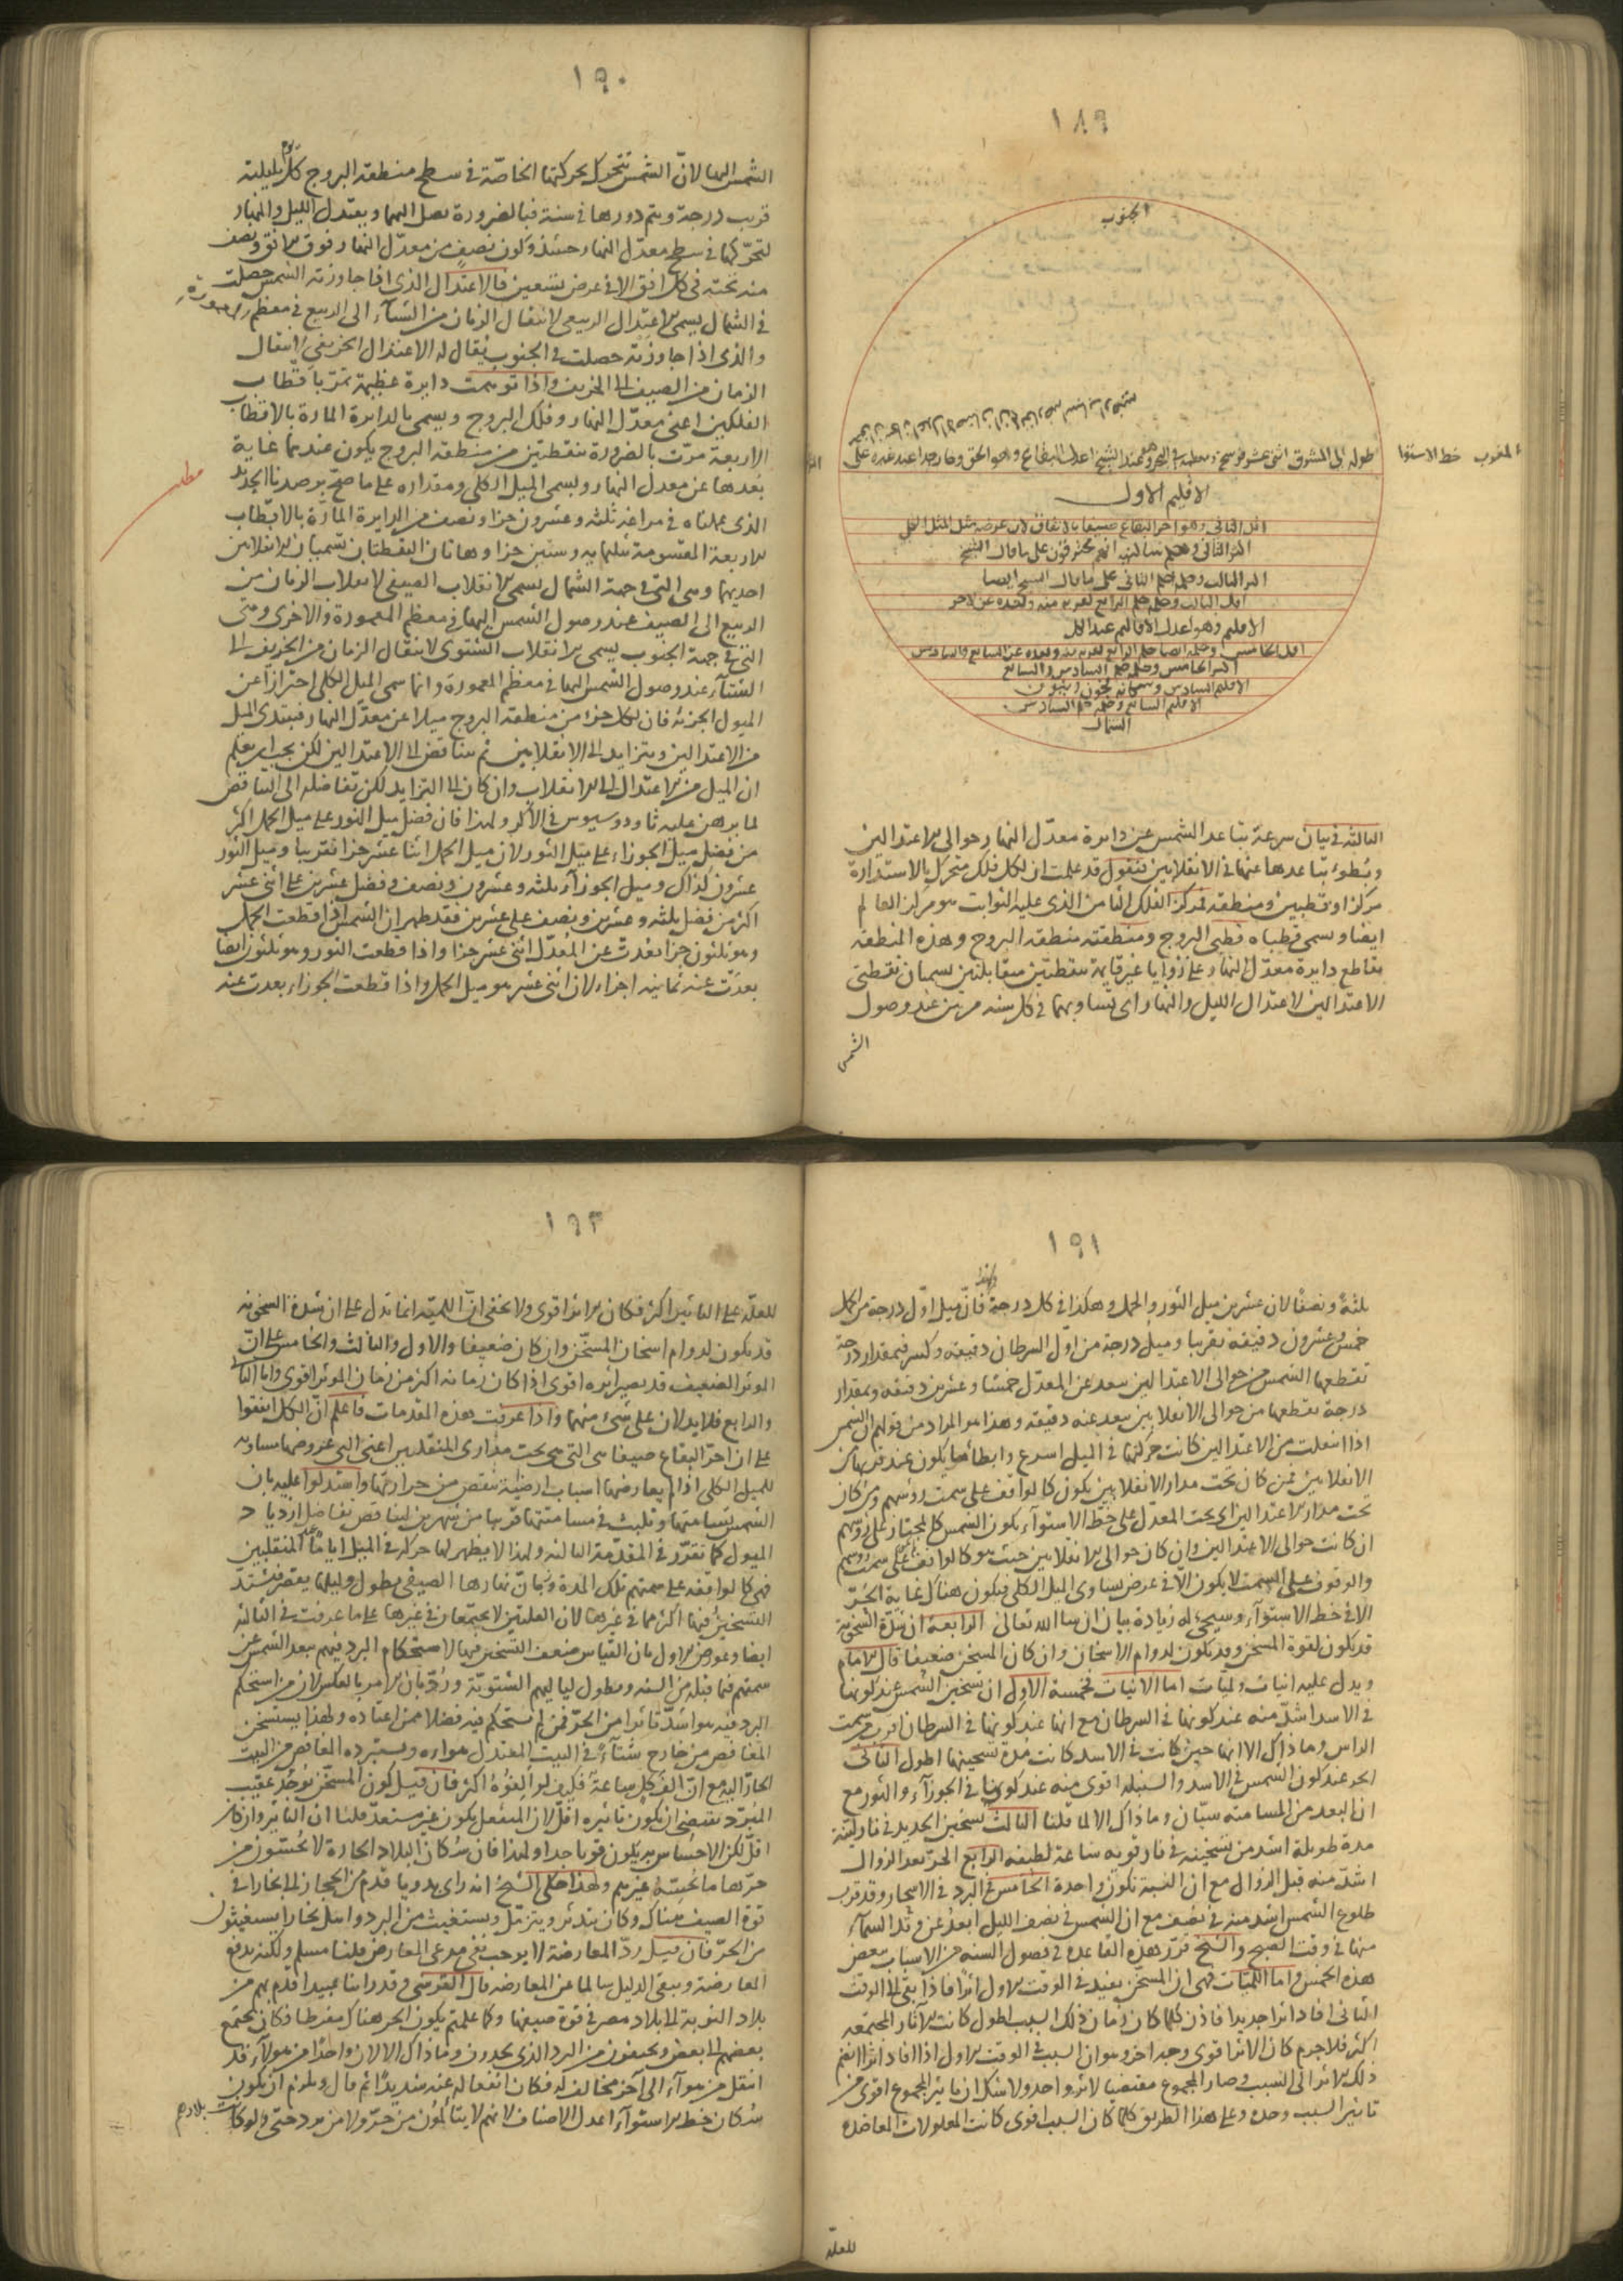 ١٨٩
الجنوب
المغرب خط الاستوا
الاقليم الاول
الاقليم وهو اعدل الاقاليم عند الكل
الشمال
الثالثة في بيان سرعة تباعد الشمس عن دايرة معدّل النهار حوالى الاعتدالين
وبطوء تباعدها عنها في الانقلابين فنقول قد علمت ان لكل فلك متحرك بالاستدارة
مركزا وقطبين ومنطقة فمركز الفلك الثامن الذى عليه الثوابت هو مركز العالم
ايضا ويسمى قطباه قطبى البروج ومنطقته منطقة البروج وهذه المنطقة
تقاطع دايرة معدّل النهار على زوايا غير قايمة بنقطتين متقابلتين يسميان نقطتى
الاعتدالين لاعتدال الليل والنهار اى تساويهما في كل سنة مرتين عند وصول
الشمس
١٩٠
الشمس اليها لانّ الشمس تتحرك بحركتها الخاصّة في سطح منطقة البروج كل يوم بليلته
قريب درجة ويتم دورها في سنة فبالضرورة يصل اليهما ويعتدل الليل والنهار
لتحرّكها في سطح معدّل النهار حينئذ وكون نصف من معدّل النهار فوق الافق ونصف
منه تحته في كل افق الا في عرض تسعين فالاعتدال الذى اذا جاوزته الشمس حصلت
في الشمال يسمى الاعتدال الربيعى لانتقال الزمان من الشتاء الى الربيع في معظم المعمورة
والذى اذا جاوزته حصلت في الجنوب يقال له الاعتدال الخريفى لانتقال
الزمان من الصيف الى الخريف واذا توهمت دايرة عظيمة تمرّ باقطاب
الفلكين اعنى معدّل النهار وفلك البروج ويسمى بالدايرة المارة بالاقطاب
الاربعة مرّت بالضرورة بنقطتين من منطقة البروج يكون عندهما غاية
بُعدها عن معدل النهار ويسمى الميل الكلى ومقداره على ما صحّ برصدنا الجديد
مطلب
الذى عملناه في مراغه ثلثه وعشرون جزا ونصف من الدايرة المارّة بالاقطاب
الاربعة المقسومة بثلثمايه وستين جزا وهاتان النقطتان تسميان الانقلابين
احديهما وهى التى في جهة الشمال يسمى الانقلاب الصيفى لانقلاب الزمان من
الربيع الى الصيف عند وصول الشمس اليها في معظم المعمورة والاخرى وهى
التى في جهة الجنوب يسمى الانقلاب الشتوى لانتقال الزمان من الخريف الى
الشتاء عند وصول الشمس اليها في معظم المعمورة وانما سمى الميل الكلى احترازا عن
الميول الجزئه فان لكل جزء من منطقة البروج ميلا عن معدّل النهار فيبتدى الميل
من الاعتدالين ويتزايد الى الانقلابين ثم يتناقص الى الاعتدالين لكن يجب ان يعلم
ان الميل من الاعتدال الى الانقلاب وان كان الى التزايد لكن تفاضله الى التناقص
لما برهن عليه ثاودوسيوس في الاكر ولهذا فان فضل ميل الثور على ميل الحمل اكثر
من فضل ميل الجوزاء على ميل الثور لان ميل الحمل اثنا عشر جزا تقريبا وميل الثور
عشرون كذلك وميل الجوزاء ثلثه وعشرون ونصف وفضل عشرين على اثنى عشر
اكثر من فضل ثلثه وعشرين ونصف على عشرين فقد ظهر ان الشمس اذا قطعت الحمل
وهو ثلثون جزا بعدت عن المعدّل اثنى عشر جزا واذا قطعت الثور وهو ثلثون ايضا
بعدت عنه ثمانيه اجزاء لان اثنى عشر هو ميل الحمل واذا قطعت الجوزاء بعدت عنه
١٩١
ثلثة ونصفا لان عشرين ميل الثور والحمل وهكذا في كل درجة فانّ ميل اوّل درجة من الحمل
خمس وعشرون دقيقة تقريبا وميل درجة من اوّل السرطان دقيقه وكسر فبمقدار درجة
تقطعها الشمس من حوالى الاعتدالين تبعد عن المعدّل خمسا وعشرين دقيقه وبمقدار
درجة تقطعها من حوالى الانقلابين تبعد عنه دقيقه وهذا هو المراد من قولهم ان الشمس
اذا انتقلت من الاعتدالين كانت حركتها في الميل اسرع وابطاها يكون عند قربها من
الانقلابين فمن كان تحت مدار الانقلابين يكون كالواقف على سمت رؤسهم ومن كان
تحت مدار الاعتدالين اى تحت المعدّل على خطّ الاستوآء يكون الشمس كالمجتاز على رؤسهم
ان كانت حوالى الاعتدالين وان كان حوالى الانقلابين حيث هو كالواقف على سمت رؤسهم
والوقوف على السمت لا يكون الا في عرض يساوى الميل الكلى فيكون هناك غاية الحرّ
لا في خط الاستوآء وسيجى له زيادة بيان ان شا الله تعالى الرابعة ان شدّة السخونة
قد يكون لقوة المسخن وقد يكون لدوام الاسخان وان كان المسخن ضعيفا قال الامام
ويدل عليه انيات ولميّات اما الانيات فخمسة الاول ان تسخين الشمس عند كونها
في الاسد اشدّ منه عند كونها في السرطان مع انها عند كونها في السرطان اقرب من سمت
الراس وما ذاك الا انها حين كانت في الاسد كانت مدة تسخينها اطول الثانى
الحر عند كون الشمس في الاسد والسنبله اقوى منه عند كونها في الجوزآء والثور مع
ان البعد من المسامته سيّان وما ذاك الا لما قلنا الثالث تسخين الحديد في نار ليّنة
مدة طويلة اشد من تسخينه في نار قويه ساعة لطيفه الرابع الحرّ بعد الزوال
اشدّ منه قبل الزوال مع ان النسبة تكون واحدة الخامس البرد في الاسحار وقد قرب
طلوع الشمس اشد منه في نصف مع ان الشمس في نصف الليل ابعد عن وتد السمآء
منها في وقت الصبح والشيخ قرّر هذه القاعدة في فصول السنه من الاسباب ببعض
هذه الخمس واما اللميّات فهى ان المسخن يفيد في الوقت الاول اثرا فاذا بقى الى الوقت
الثانى افاد اثرا جديدا فاذن كلما كان زمان ذلك السبب اطول كانت الآثار المجتمعه
اكثر فلا جرم كان الاثر اقوى وجه اخر وهو ان السبب في الوقت الاول اذا افاد اثرا انضم
ذلك الاثر الى السبب وصار المجموع مقتضيا لاثر واحد ولا شك ان تاثير المجموع اقوى من
تاثير السبب وحده وعلى هذا الطريق كلما كان السبب اقوى كانت المعلولات المعاضدة
للعلّة
١٩٣
للعلّة على التاثير اكثر فكان الاثر اقوى ولا يخفى انّ اللميّه انما تدل على ان شدة السخونه
قد يكون لدوام اسخان المسخّن وان كان ضعيفا والاول والثالث والخامس على انّ
الموثر الضعيف قد يصير اثره اقوى اذا كان زمانه اكثر من زمان الموثر القوى واما الثانى
والرابع فلا يدلان على شئ منهما واذا عرفت هذه المقدمات فاعلم انّ الكل اتفقوا
على ان احرّ البقاع صيفا هى التى هى تحت مدارى المنقلبين اعنى التى عروضها مساويه
للميل الكلى اذا لم يعارضها اسباب ارضيّة تنقص من حرارتها واستدلوا عليه بان
الشمس تسامتها وتلبث في مسامتتها قريبا من شهرين لتناقص تفاضل ازدياد
الميول كما تقرّر في المقدّمة الثالثه ولهذا لا يظهر لها حركة في الميل اياما عند المنقلبين
فهى كالواقفه على سمتهم تلك المدة وبانّ نهارها الصيفى يطول وليلها يقصر فيشتدّ
التسخين فيها اكثر مما في غيرها لان العلتين لا يجتمعان في غيرها على ما عرفت في الثالثه
ايضا وعورض الاول بان القياس ضعف التسخين فيها لاستحكام البرد فيهم ببعد الشمس عن
سمتهم فيما قبله من السنه وبطول لياليهم الشتويّة ورُدّ بان الامر بالعكس لان من استحكم
البرد فيه هو اشدّ تاثرا من الحرّ ممن لم يستحكم فيه فضلا ممن اعتاده ولهذا يستسخن
المغافص من خارج شتآء في البيت المعتدل هوآره ويستبرده المغافص من البيت
الحارّ اليه مع انّ الف كل ساعة فكيف لو الفوه اكثر فان قيل كون المسخّن يوجد عقيب
المبرّد يقتضى ان يكون تاثيره اقلّ لان المنفعل يكون غير مستعدّ قلنا ان التاثير وان كان
اقلّ لكن الاحساس به يكون قويا جدا ولهذا فان سُكان البلاد الحارة لا يحسّون من
حرّها ما يحسّه غيرهم ولهذا حكى الشيخ انه راى بدويا قدم من الحجاز الى بخارا في
قوة الصيف هناك وكان يتدثر ويتزمّل ويستغيث من البرد واهل بخارا يستغيثون
من الحرّ فان قيل ردّ المعارضة لا يوجب نفى مدعى المعارض قلنا مسلم ولكنه يدفع
المعارضة ويبقى الدليل سالما عن المعارضه قال القرشى وقد راينا عبيدا قدم بهم من
بلاد النوبة الى بلاد مصر في قوة صيفها وكما علمتم يكون الحر هناك مفرطا فكان يجتمع
بعضهم الى بعض من البرد الذى يجدون وما ذاك الا لان واحدًا من هولآء قد
انتقل من هوآء الى آخر مخالف له فكان انفعاله عنه شديدًا ثم قال ويلزم ان يكون
سُكان خط الاستوآء اعدل الاصناف لانهم لا يتألمون من حرّ ولا من برد حتى ولو كانت بلادهم